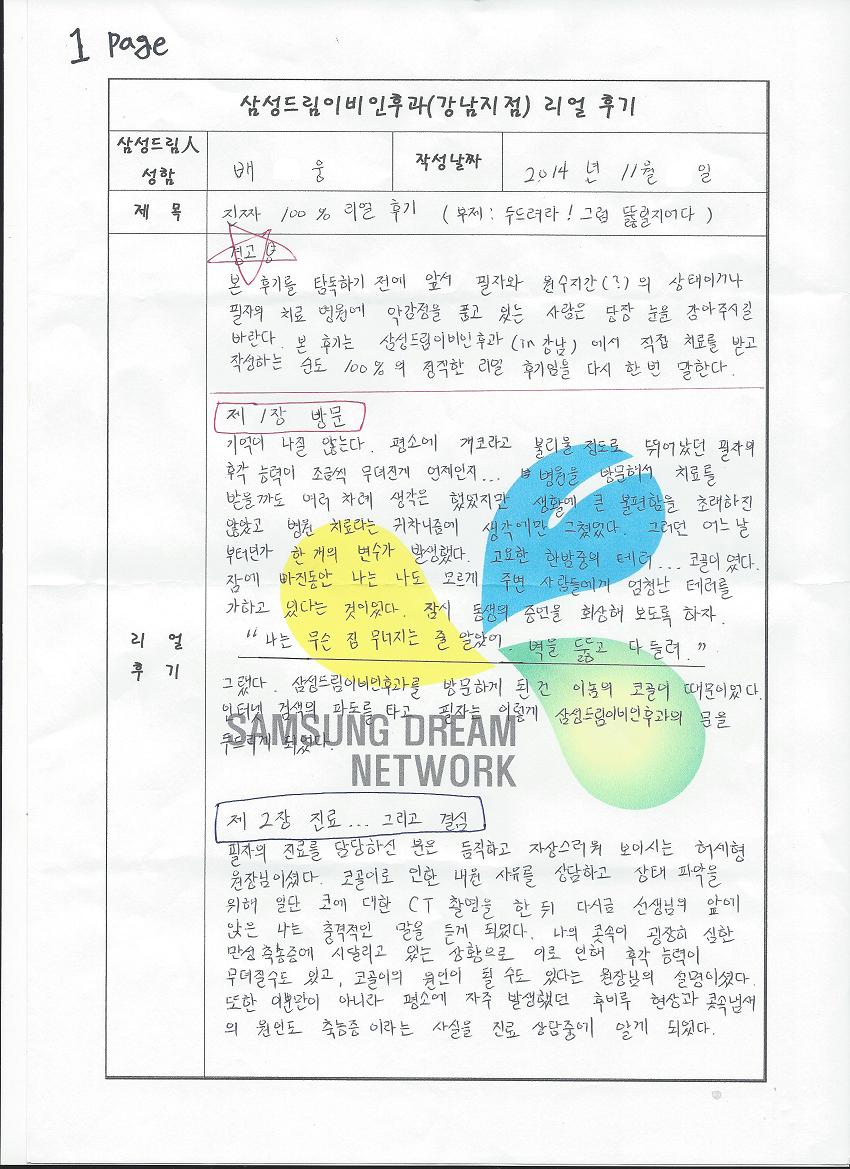 1 page
삼성드림이비인후과(강남지점) 리얼 후기
삼성드림人
성함
배 웅
작성날짜
2014 년 11월 일
제 목
진짜 100% 리얼 후기 ( 부제 : 두드려라! 그럼 뚫릴지어다 )
경고
본 후기를 탐독하기 전에 앞서 필자와 원수지간(?)의 상태이거나
필자의 치료 병원에 악감정을 품고 있는 사람은 당장 눈을 감아주시길
바란다. 본 후기는 삼성드림이비인후과(in 강남) 에서 직접 치료를 받고
작성하는 순도 100%의 정직한 리얼 후기임을 다시 한번 말한다.
제 1장 방문
기억이 나질 않는다. 평소에 개코라고 불리울 정도로 뛰어났던 필자의
후각 능력이 조금씩 무뎌진게 언제인지... 병원을 방문해서 치료를
받을까도 여러 차례 생각은 했었지만 생활에 큰 불편함을 초래하진
않았고 병원 치료라는 귀차니즘에 생각에만 그쳤었다. 그러던 어느날
부터인가 한 개의 변수가 발생했다. 고요한 한밤중의 테러... 코골이였다.
잠에 빠진동안 나는 나도 모르게 주변 사람들에게 엄청난 테러를
가하고 있다는 것이었다. 잠시 동생의 증언을 회상해 보도록 하자.
“나는 무슨 집 무너지는 줄 알았어. 벽을 뚫고 다 들려.”
그랬다. 삼성드림이비인후과를 방문하게 된건 이놈의 코골이 때문이었다.
인터넷 검색의 파도를 타고 필자는 이렇게 삼성드림이비인후과의 문을
두드리게 되었다.
SAMSUNG DREAM
NETWORK
리 얼
후 기
제 2장 진료... 그리고 결심
필자의 진료를 담당하신 분은 듬직하고 자상스러워 보이시는 허세형
원장님이셨다. 코골이로 인한 내원 사유를 상담하고 상태 파악을
위해 일단 코에 대한 CT 촬영을 한 뒤 다시금 선생님의 앞에
앉은 나는 충격적인 말을 듣게 되었다. 나의 콧속이 굉장히 심한
만성 축농증에 시달리고 있는 상황으로 이로 인해 후각 능력이
무뎌질수도 있고, 코골이의 원인이 될 수도 있다는 원장님의 설명이셨다.
또한 이뿐만이 아니라 평소에 자주 발생했던 후비루 현상과 콧속냄새
의 원인도 축농증 이라는 사실을 진료 상담중에 알게 되었다.